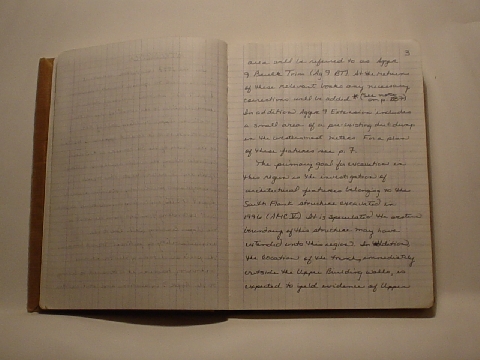 3
area will be referred to as Agga
9 Baulk Trim (Ag 9 BT). At the return
of these relevant books any necessary
correction will be added. * (see note on p. 57)
In addition Agga 9 Extension includes
a small area of a pre-existing
in the westernmost meter. For a plan
of these features see p. 7.
The primary goal for excavation in
this region is the investigation of
architectural features belonging to the
South Flank structure excavated in
1996 (AMC IV). It is speculated the eastern
boundary of this structure may have
extended into this region. In addition
the location of the trench, immediately
outside the Upper Building walls, is
expected to yield evidence of Upper